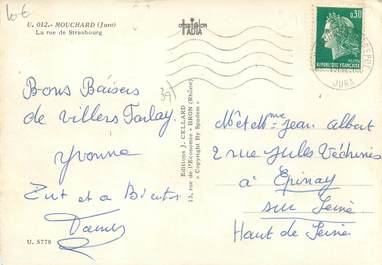 10€
U. 012.- MOUCHARD (Jura)
La rue de Strasbourg
Bons Baisers
de Villers Farlay
Yvonne
Zut et a Bientôt
U. 5778
39)
Editions J. CELLARD
13, rue de l'Economie - BRON (Rhône)
« Copyright By Spadem »
0,30
REPUBLIQUE FRANCAISE
JURA
M et Mme Jean Albert
2 rue Jules Védrines
à Epinay
sur Seine
Haut de Seine